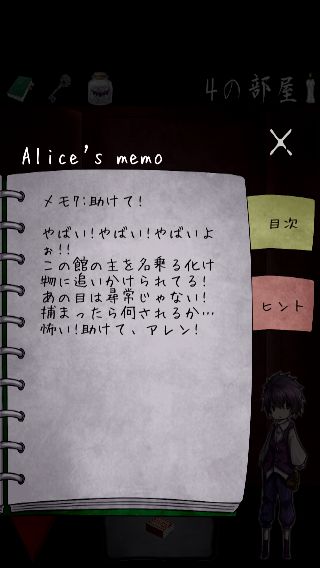 4の部屋
Alice's memo
メモ7:助けて!
やばい!やばい!やばいよ
ぉ!!
この館の主を名乗る化け
物に追いかけられてる!
あの目は尋常じゃない!
捕まったら何されるか…
怖い!助けて、アレン!
目次
ヒント